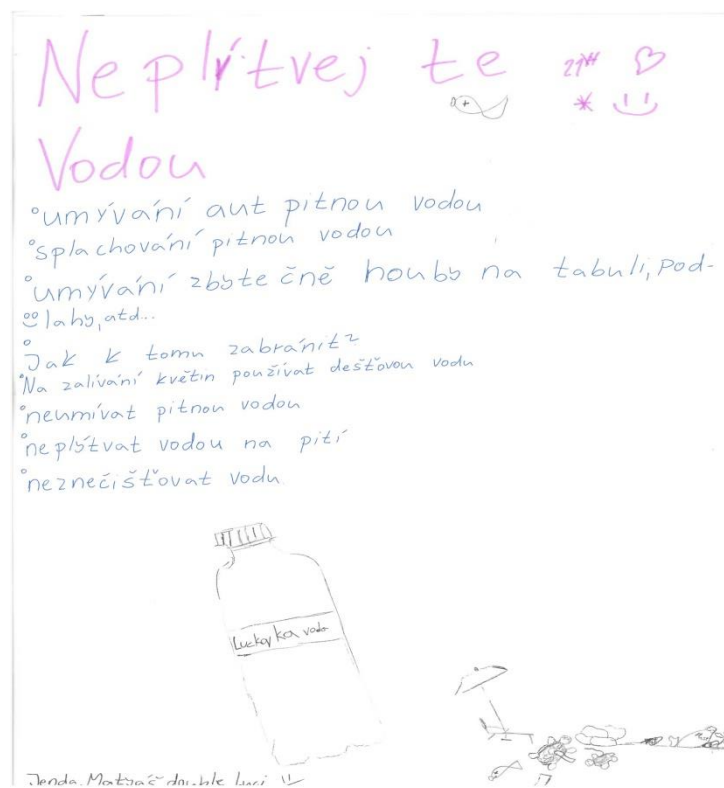 Neplýtvej te
Vodou
°umývání aut pitnou vodou
°splachování pitnou vodou
°umývání zbytečně houby na tabuli, Pod-
lahy, atd...
°Jak k tomu zabránit?
°Na zalívání květin používat dešťovou vodu
°neumívat pitnou vodou
°neplýtvat vodou na pití
°neznečišťovat vodu
voda
Jenda, double